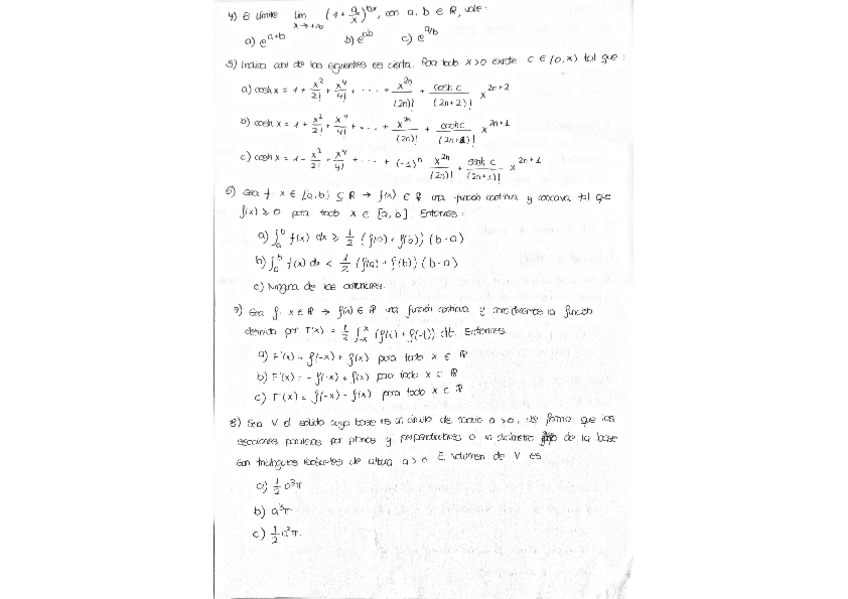 4) El límite lim x→+∞ (1 + a/x)^bx, con a, b ∈ ℝ, vale:
a) e^a+b b) e^ab c) e^a/b
5) Indica cual de las siguientes es cierta. Para todo x>0 existe c ∈ (0,x) tal que:
a) cosh x = 1 + x²/2! + x⁴/4! + ... + x^2n/(2n)! + cosh c/(2n+2)! x^2n+2
b) cosh x = 1 + x²/2! + x⁴/4! + ... + x^2n/(2n)! + cosh c/(2n+1)! x^2n+1
c) cosh x = 1 - x²/2! + x⁴/4! + ... + (-1)^n x^2n/(2n)! + c/(2n+1)! x^2n+1
6) Sea f: x ∈ [a,b] ⊆ ℝ → f(x) ∈ ℝ una función continua y concava tal que
f(x) ≥ 0 para todo x ∈ [a,b]. Entonces:
a) ∫_a^b f(x) dx ≥ 1/2 (f(a) + f(b)) (b-a)
b) ∫_a^b f(x) dx < 1/2 (f(a) + f(b)) (b-a)
c) Ninguna de las anteriores.
7) Sea f: x ∈ ℝ → f(x) ∈ ℝ una función continua y consideremos la función
definida por F(x) = 1/2 ∫_-x^x (f(t) + f(-t)) dt. Entonces
a) F'(x) = f(-x) + f(x) para todo x ∈ ℝ
b) F'(x) = - f(-x) + f(x) para todo x ∈ ℝ
c) F'(x) = f(-x) - f(x) para todo x ∈ ℝ
8) Sea V el solido cuya base es un círculo de radio a>0, de forma que las
secciones por planos perpendiculares a un diámetro fijo de la base
son triángulos de altura a>0. El volumen de V es
a) 1/2 a³π
b) a³π
c) 1/2 a²π